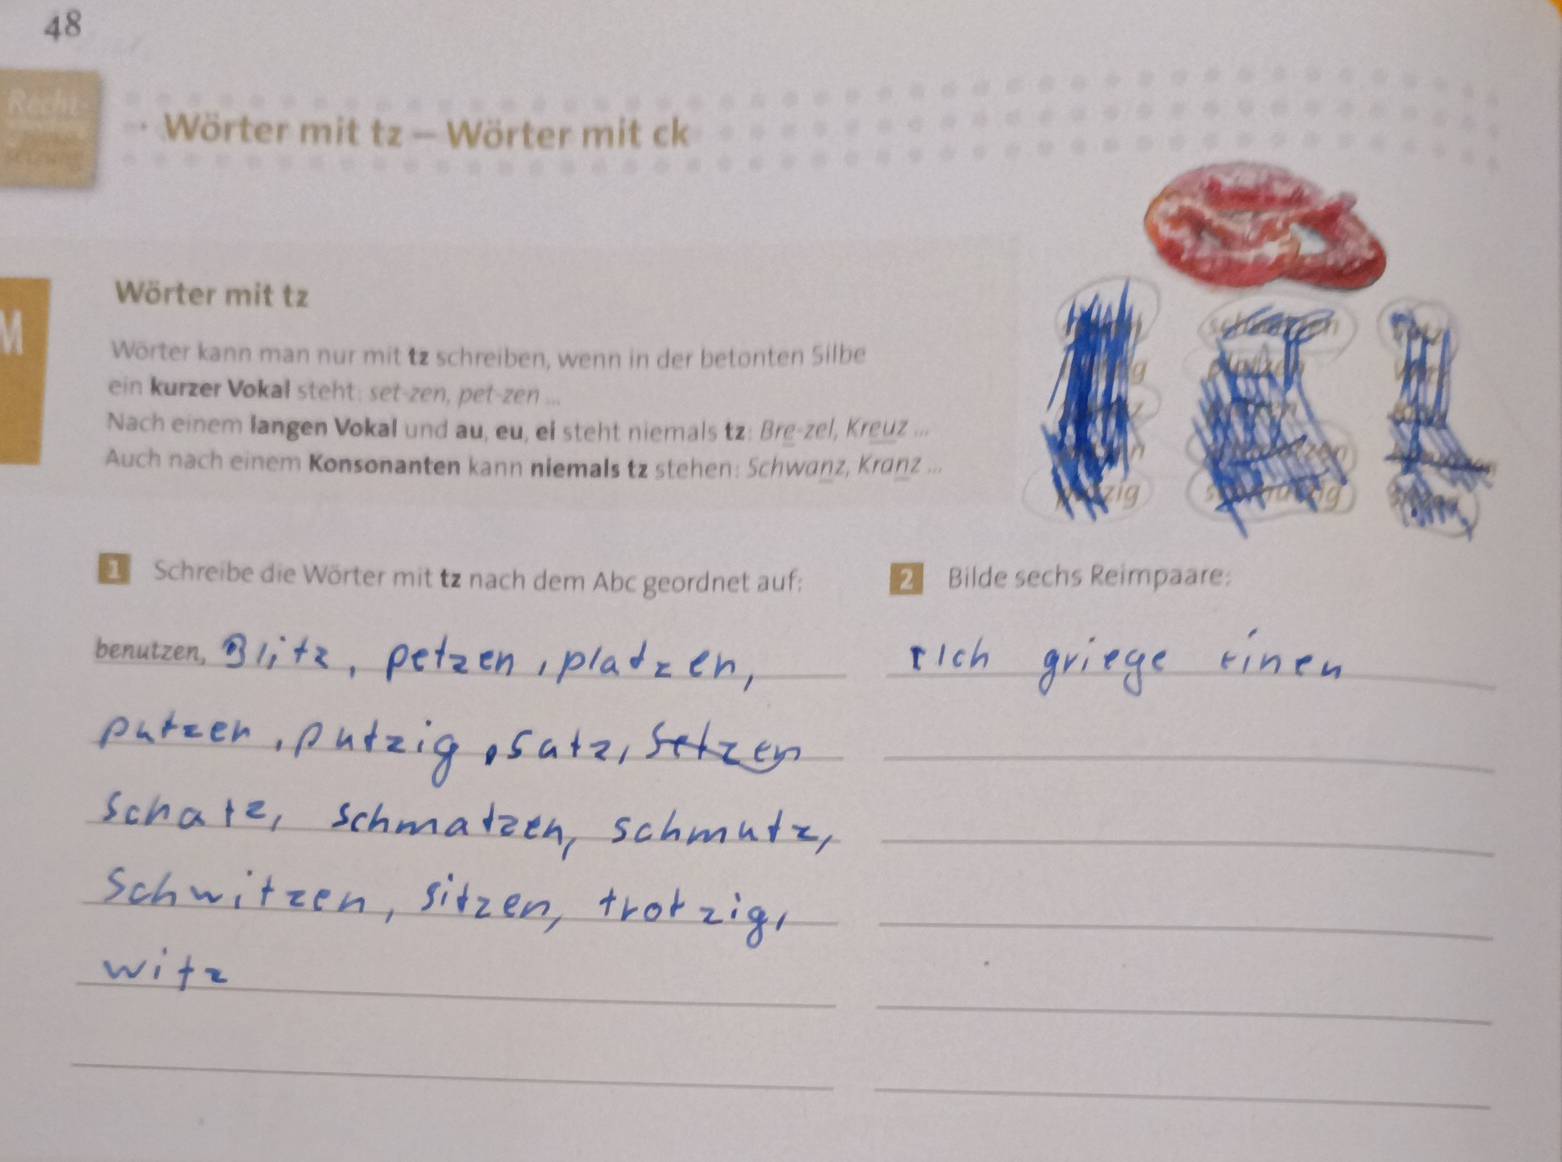 48
Recht-
→ Wörter mit tz – Wörter mit ck
M
Wörter mit tz
Wörter kann man nur mit tz schreiben, wenn in der betonten Silbe
ein kurzer Vokal steht: set-zen, pet-zen ...
Nach einem langen Vokal und au, eu, ei steht niemals tz: Bre-zel, Kreuz ...
Auch nach einem Konsonanten kann niemals tz stehen: Schwanz, Kranz ...
putzig schmutzig
1 Schreibe die Wörter mit tz nach dem Abc geordnet auf:
benutzen, Blitz, petzen, platzen,
putzen, putzig, satz, setzen
schatz, schmatzen, schmutz,
Schwitzen, sitzen, trotzig,
witz
2 Bilde sechs Reimpaare:
Ich griege einen